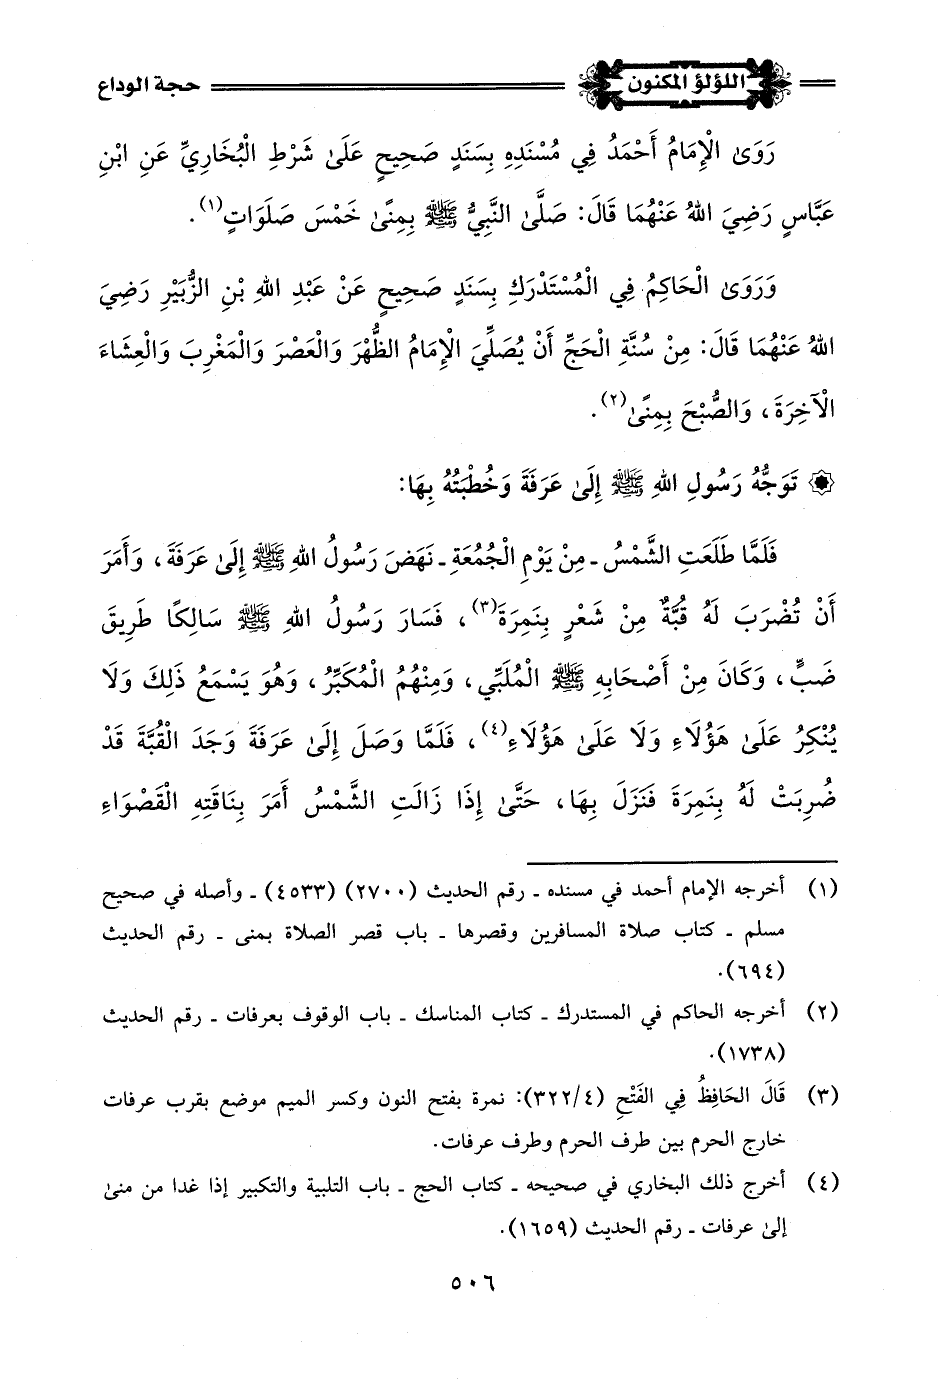 اللؤلؤ المكنون
حجة الوداع
رَوَىٰ الْإِمَامُ أَحْمَدُ فِي مُسْنَدِهِ بِسَنَدٍ صَحِيحٍ عَلَىٰ شَرْطِ الْبُخَارِيِّ عَنِ ابْنِ
عَبَّاسٍ رَضِيَ اللهُ عَنْهُمَا قَالَ: صَلَّىٰ النَّبِيُّ ﷺ بِمِنًىٰ خَمْسَ صَلَوَاتٍ(١).
وَرَوَىٰ الْحَاكِمُ فِي الْمُسْتَدْرَكِ بِسَنَدٍ صَحِيحٍ عَنْ عَبْدِ اللهِ بْنِ الزُّبَيْرِ رَضِيَ
اللهُ عَنْهُمَا قَالَ: مِنْ سُنَّةِ الْحَجِّ أَنْ يُصَلِّيَ الْإِمَامُ الظُّهْرَ وَالْعَصْرَ وَالْمَغْرِبَ وَالْعِشَاءَ
الْآخِرَةَ، وَالصُّبْحَ بِمِنًىٰ(٢).
۞ تَوَجُّهُ رَسُولِ اللهِ ﷺ إِلَىٰ عَرَفَةَ وَخُطْبَتُهُ بِهَا:
فَلَمَّا طَلَعَتِ الشَّمْسُ ـ مِنْ يَوْمِ الْجُمُعَةِ ـ نَهَضَ رَسُولُ اللهِ ﷺ إِلَىٰ عَرَفَةَ، وَأَمَرَ
أَنْ تُضْرَبَ لَهُ قُبَّةٌ مِنْ شَعْرٍ بِنَمِرَةَ(٣)، فَسَارَ رَسُولُ اللهِ ﷺ سَالِكًا طَرِيقَ
ضَبٍّ، وَكَانَ مِنْ أَصْحَابِهِ ﷺ الْمُلَبِّي، وَمِنْهُمُ الْمُكَبِّرُ، وَهُوَ يَسْمَعُ ذَلِكَ وَلَا
يُنْكِرُ عَلَىٰ هَؤُلَاءِ وَلَا عَلَىٰ هَؤُلَاءِ(٤)، فَلَمَّا وَصَلَ إِلَىٰ عَرَفَةَ وَجَدَ الْقُبَّةَ قَدْ
ضُرِبَتْ لَهُ بِنَمِرَةَ فَنَزَلَ بِهَا، حَتَّىٰ إِذَا زَالَتِ الشَّمْسُ أَمَرَ بِنَاقَتِهِ الْقَصْوَاءِ
(١) أخرجه الإمام أحمد في مسنده ـ رقم الحديث (٢٧٠٠) (٤٥٣٣) ـ وأصله في صحيح
مسلم ـ كتاب صلاة المسافرين وقصرها ـ باب قصر الصلاة بمنى ـ رقم الحديث
(٦٩٤).
(٢) أخرجه الحاكم في المستدرك ـ كتاب المناسك ـ باب الوقوف بعرفات ـ رقم الحديث
(١٧٣٨).
(٣) قَالَ الحَافِظُ فِي الفَتْحِ (٣٢٢/٤): نمرة بفتح النون وكسر الميم موضع بقرب عرفات
خارج الحرم بين طرف الحرم وطرف عرفات.
(٤) أخرج ذلك البخاري في صحيحه ـ كتاب الحج ـ باب التلبية والتكبير إذا غدا من منىٰ
إلىٰ عرفات ـ رقم الحديث (١٦٥٩).
٥٠٦